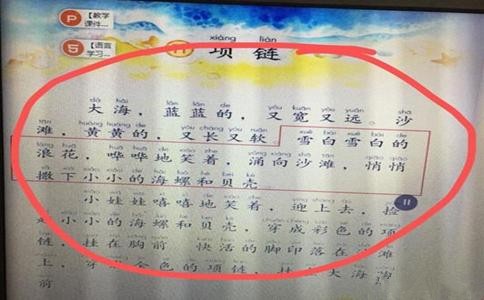 P 【教学课件...
5 【语言学习...
xiàng liàn
11 项 链
dà hǎi lán lán de yòu kuān yòu yuǎn shā
大 海，蓝 蓝 的，又 宽 又 远。沙
tān huáng huáng de yòu cháng yòu ruǎn xuě bái xuě bái de
滩，黄 黄 的，又 长 又 软。雪 白 雪 白 的
làng huā huā huā de xiào zhe yǒng xiàng shā tān qiāo qiāo
浪 花，哗 哗 地 笑 着，涌 向 沙 滩，悄 悄
撒 下 小 小 的 海 螺 和 贝 壳
11
小 娃 娃 嘻 嘻 地 笑 着，迎 上 去，捡
小 小 的 海 螺 和 贝 壳，穿 成 彩 色 的 项
链，挂 在 胸 前 快 活 的 脚 印 落 在 滩
上，穿 金 色 的 项 链，大 海
前